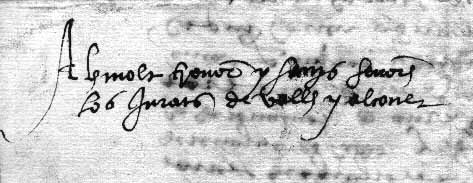 Als molt honor y savis senors
los Jurats de valls y alcover